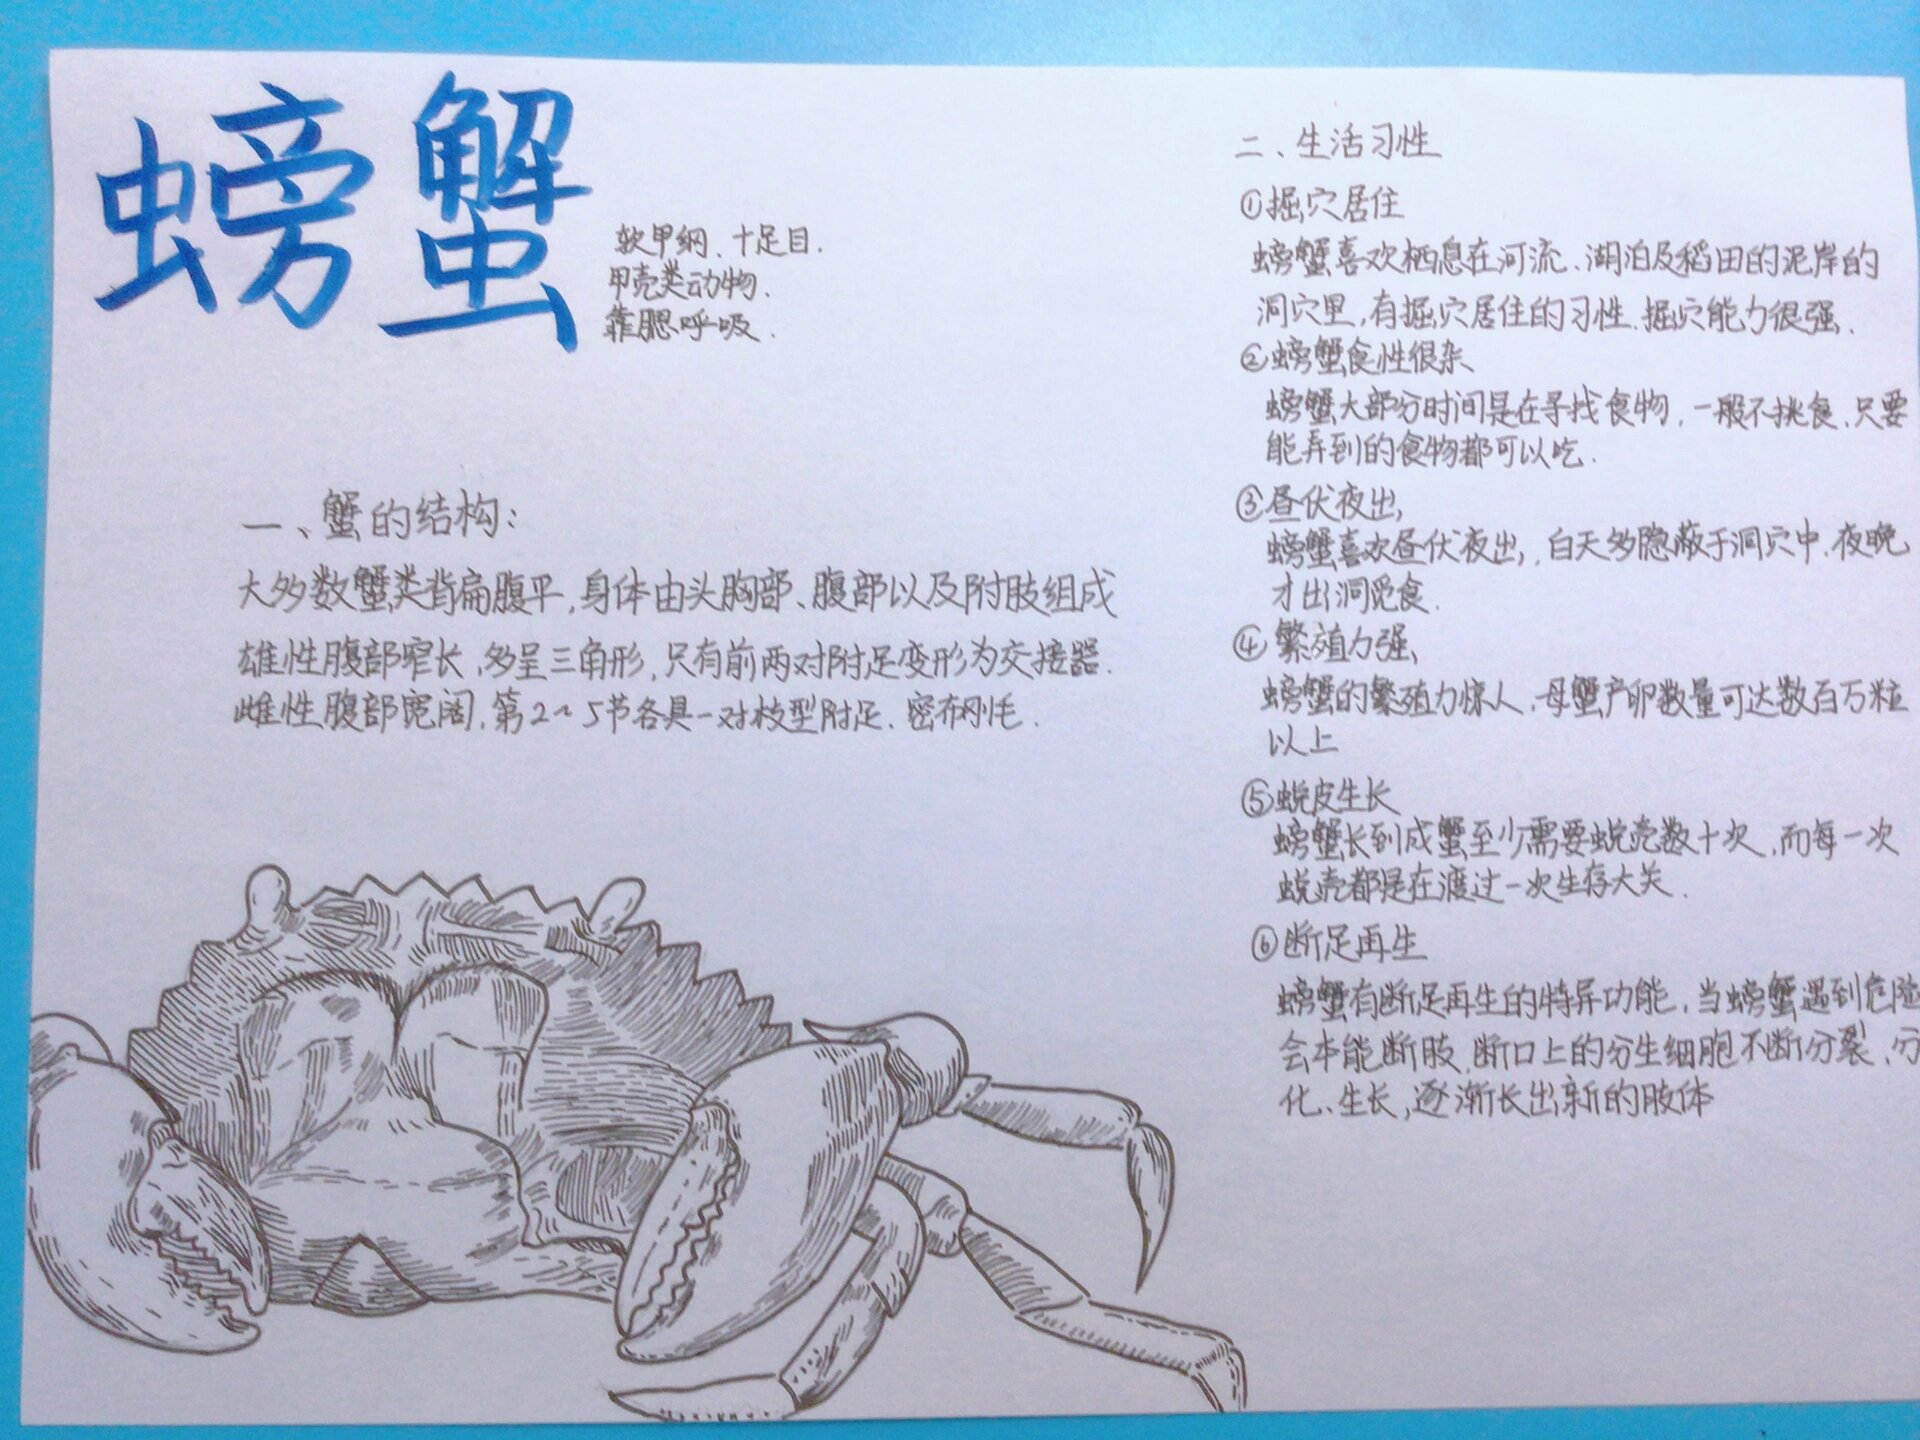 螃蟹
软甲纲、十足目.
甲壳类动物.
靠腮呼吸.
一、蟹的结构:
大多数蟹类背扁腹平,身体由头胸部、腹部以及附肢组成
雄性腹部窄长,多呈三角形,只有前两对附足变形为交接器.
雌性腹部宽阔,第2~5节各具一对枝型附足.密布刚毛.
二、生活习性
①掘穴居住
螃蟹喜欢栖息在河流、湖泊及稻田的泥岸的
洞穴里,有掘穴居住的习性.掘穴能力很强.
②螃蟹食性很杂
螃蟹大部分时间是在寻找食物,一般不挑食.只要
能弄到的食物都可以吃.
③昼伏夜出,
螃蟹喜欢昼伏夜出,白天多隐蔽于洞穴中.夜晚
才出洞觅食.
④繁殖力强,
螃蟹的繁殖力惊人,母蟹产卵数量可达数百万粒
以上
⑤蜕皮生长
螃蟹长到成蟹至少需要蜕壳数十次,而每一次
蜕壳都是在渡过一次生存大关.
⑥断足再生
螃蟹有断足再生的特异功能,当螃蟹遇到危险
会本能断肢.断口上的分生细胞不断分裂、分
化、生长,逐渐长出新的肢体